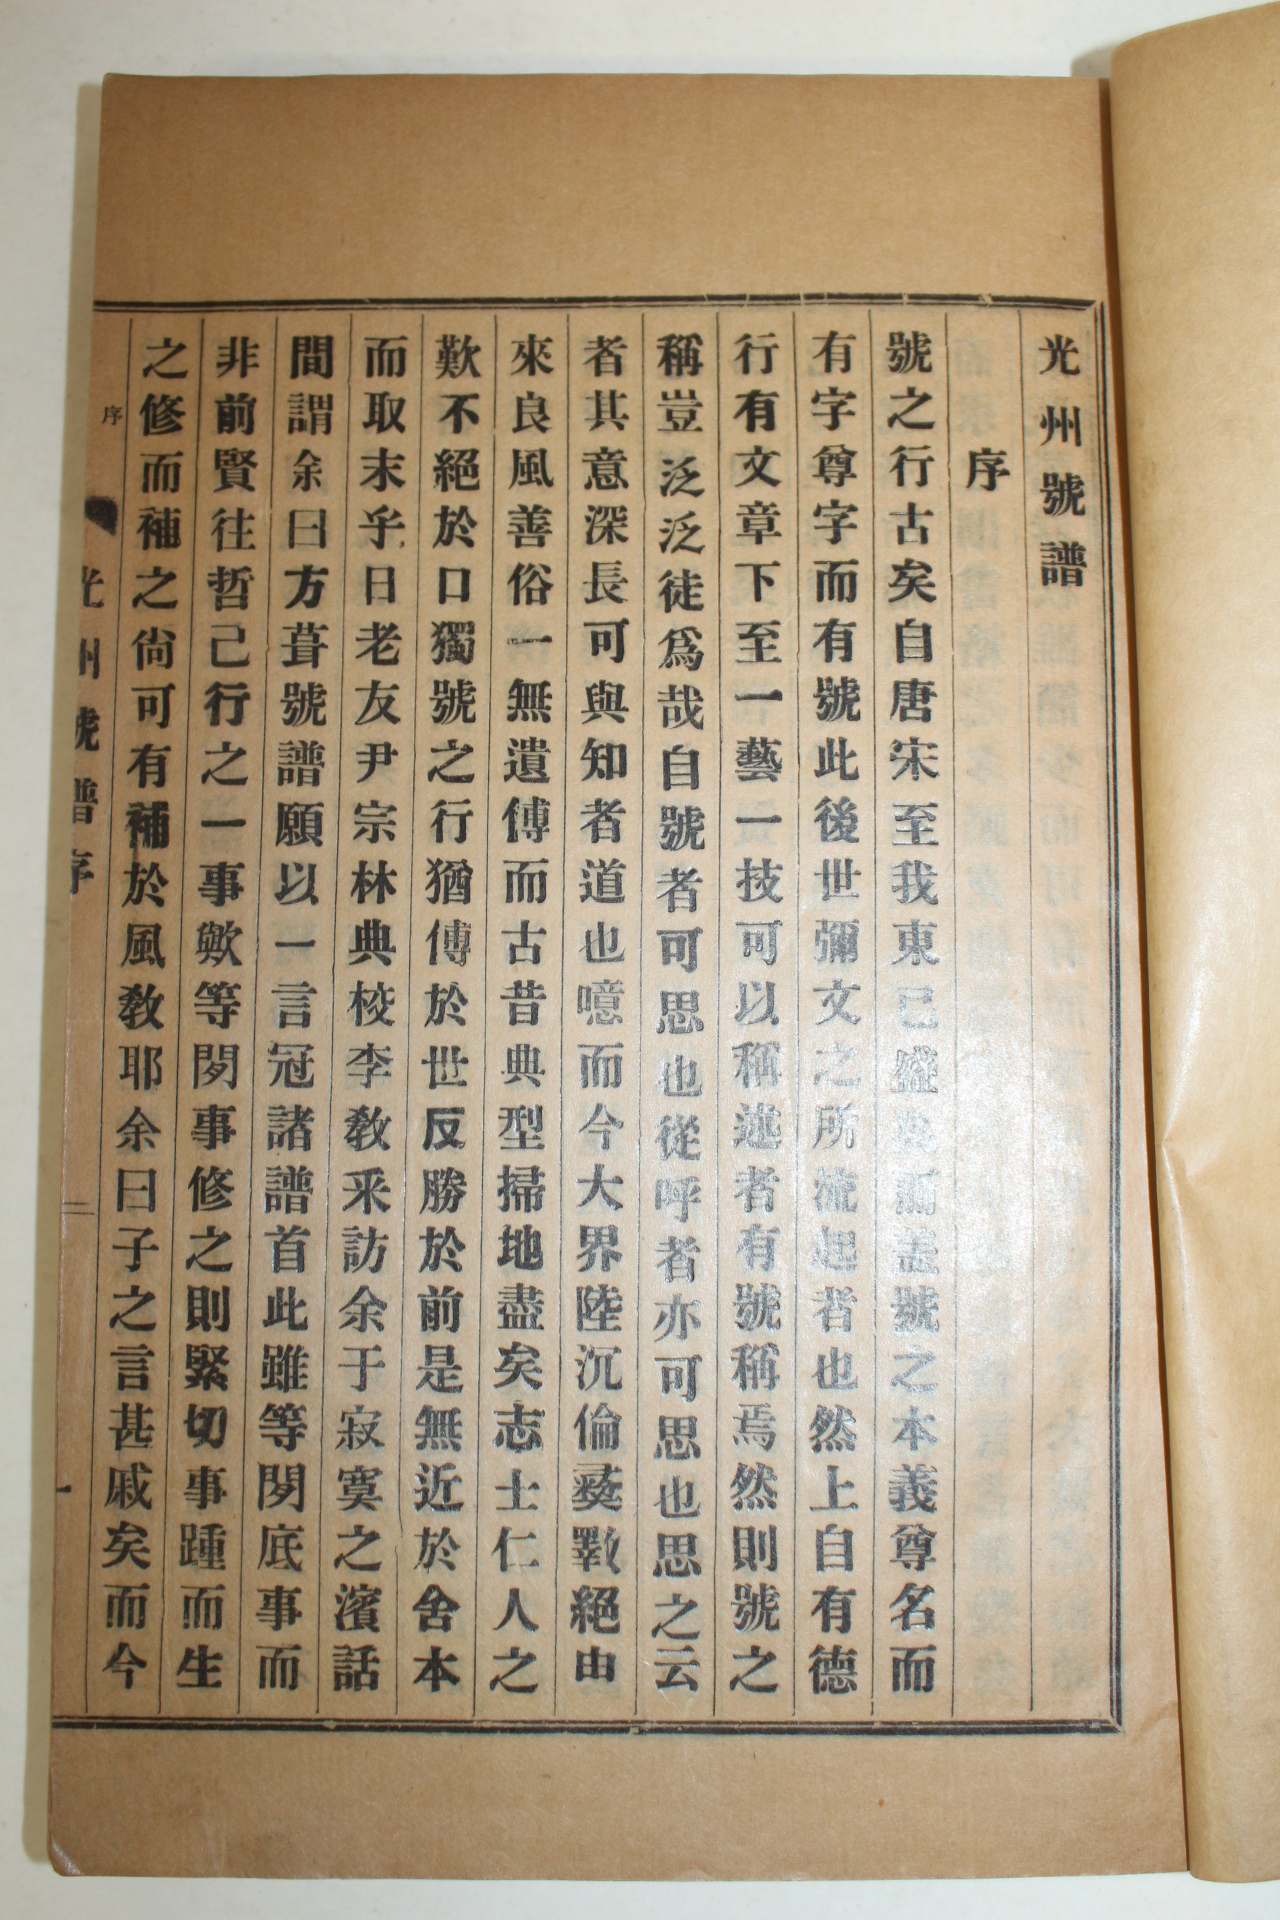 光州號譜
序
號之行古矣自唐宋至我東已盛矣而盖號之本義尊名而
有字尊字而有號此後世彌文之所流起者也然上自有德
行有文章下至一藝一技可以稱述者有號稱焉然則號之
稱豈泛泛徒爲哉自號者可思也從呼者亦可思也思之云
者其意深長可與知者道也噫而今大界陸沉倫彛斁絕由
來良風善俗一無遺傳而古昔典型掃地盡矣志士仁人之
歎不絕於口獨號之行猶傳於世反勝於前是無近於舍本
而取末乎日老友尹宗林典校李敎采訪余于寂寞之濱話
間謂余曰方葺號譜願以一言冠諸譜首此雖等閔底事而
非前賢往哲己行之一事歟等閔事修之則緊切事踵而生
之修而補之尙可有補於風敎耶余曰子之言甚戚矣而今
序
光州號譜序
一